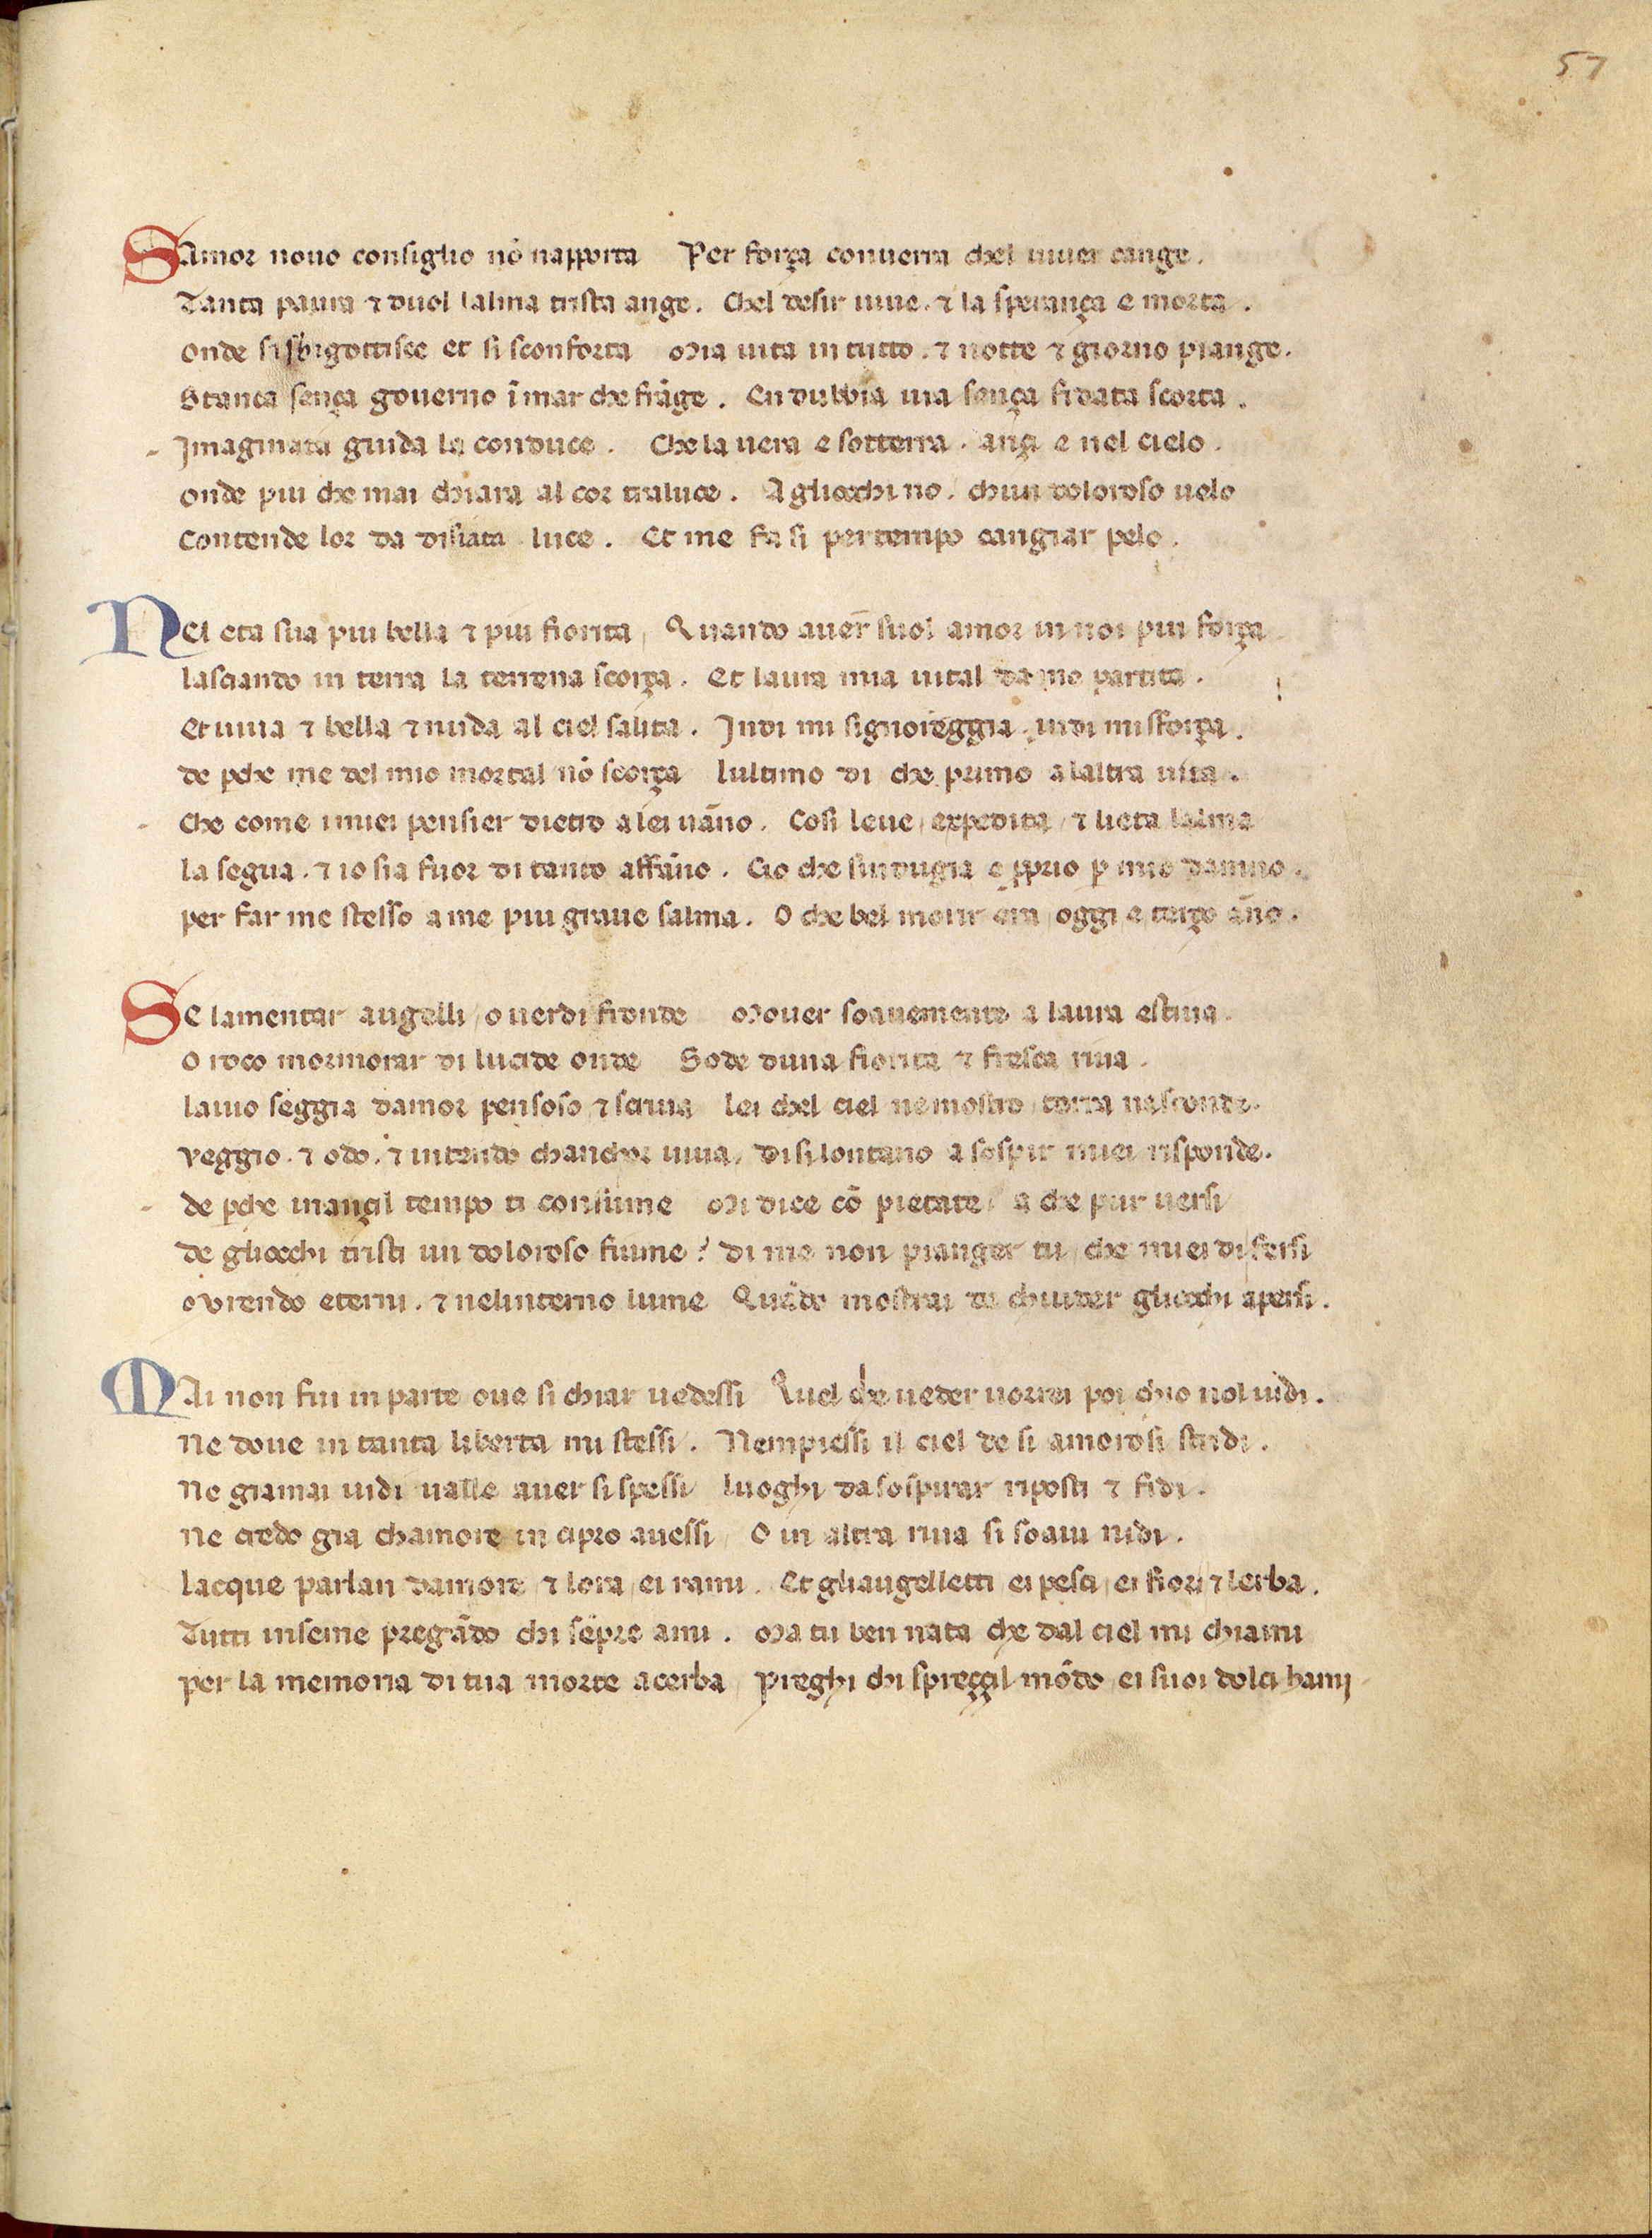 57
SAmor nouo consiglio nō napporta Per força conuerra chel uiuer cange.
Tanta paura ⁊ duol lalma trista ange. Chel desir uiue. ⁊ la sperança e morta.
Onde si sbigottisce et si sconforta Mia uita in tutto. ⁊ notte ⁊ giorno piange.
Stanca sença gouerno ī mar che frāge. En dubbia uia sença fidata scorta.
Imaginata guida la conduce. Che la uera e sotterra. ançi e nel cielo.
Onde piu che mai chiara al cor traluce. A gliocchi no. chun doloroso uelo
Contende lor da disiata luce. Et me fa si per tempo cangiar pelo.
NEl eta sua piu bella ⁊ piu fiorita, Quando auer suol amor in noi piu força
lasciando in terra la terrena scorça. Et laura mia uital da me partita.
Et uiua ⁊ bella ⁊ nuda al ciel salita. Indi mi signoreggia, indi mi sforça.
de pche me del mio mortal nō scorça lultimo di che primo a laltra uita.
Che come i miei pensier dietro a lei uāno. Cosi leue, expedita, ⁊ lieta lalma
la segua. ⁊ io sia fuor di tanto affāno. Cio che sindugia e pprio p mio damno.
per far me stesso a me piu graue salma. O che bel morir era, oggi e terço āno.
SE lamentar augelli, o uerdi fronde Mouer soauemente a laura estiua.
O roco mormorar di lucide onde Sode duna fiorita ⁊ fresca riua.
lauio seggia damor pensoso ⁊ scriua lei chel ciel ne mostro, terra nasconde.
Veggio. ⁊ odo. ⁊ intendo chanchor uiua, di si lontano a sospir miei risponde.
de pche inançil tempo ti consume Mi dice cō pietate, a che pur uersi
de gliocchi tristi un doloroso fiume? di me non pianger tu, che miei di fersi
Morendo eterni. ⁊ nelinterno lume Quādo mostrai de chiuder gliocchi apersi.
MAi non fui in parte oue si chiar uedessi Quel che ueder uorrei poi chio nol uidi.
Ne doue in tanta liberta mi stessi. Nempiessi il ciel de si amorosi stridi.
Ne giamai uidi ualle auer si spessi luoghi da sospirar riposti ⁊ fidi.
Ne credo gia chamore in cipro auessi, O in altra riua si soaui nidi.
lacque parlan damore, ⁊ lora, ei rami. Et gliaugelletti ei pesci, ei fiori ⁊ lerba.
Tutti inseme pregādo chi sēpre ami. Ma tu ben nata che dal ciel mi chiami
per la memoria di tua morte acerba, Preghi chi spreççil mōdo, ei suoi dolci hami